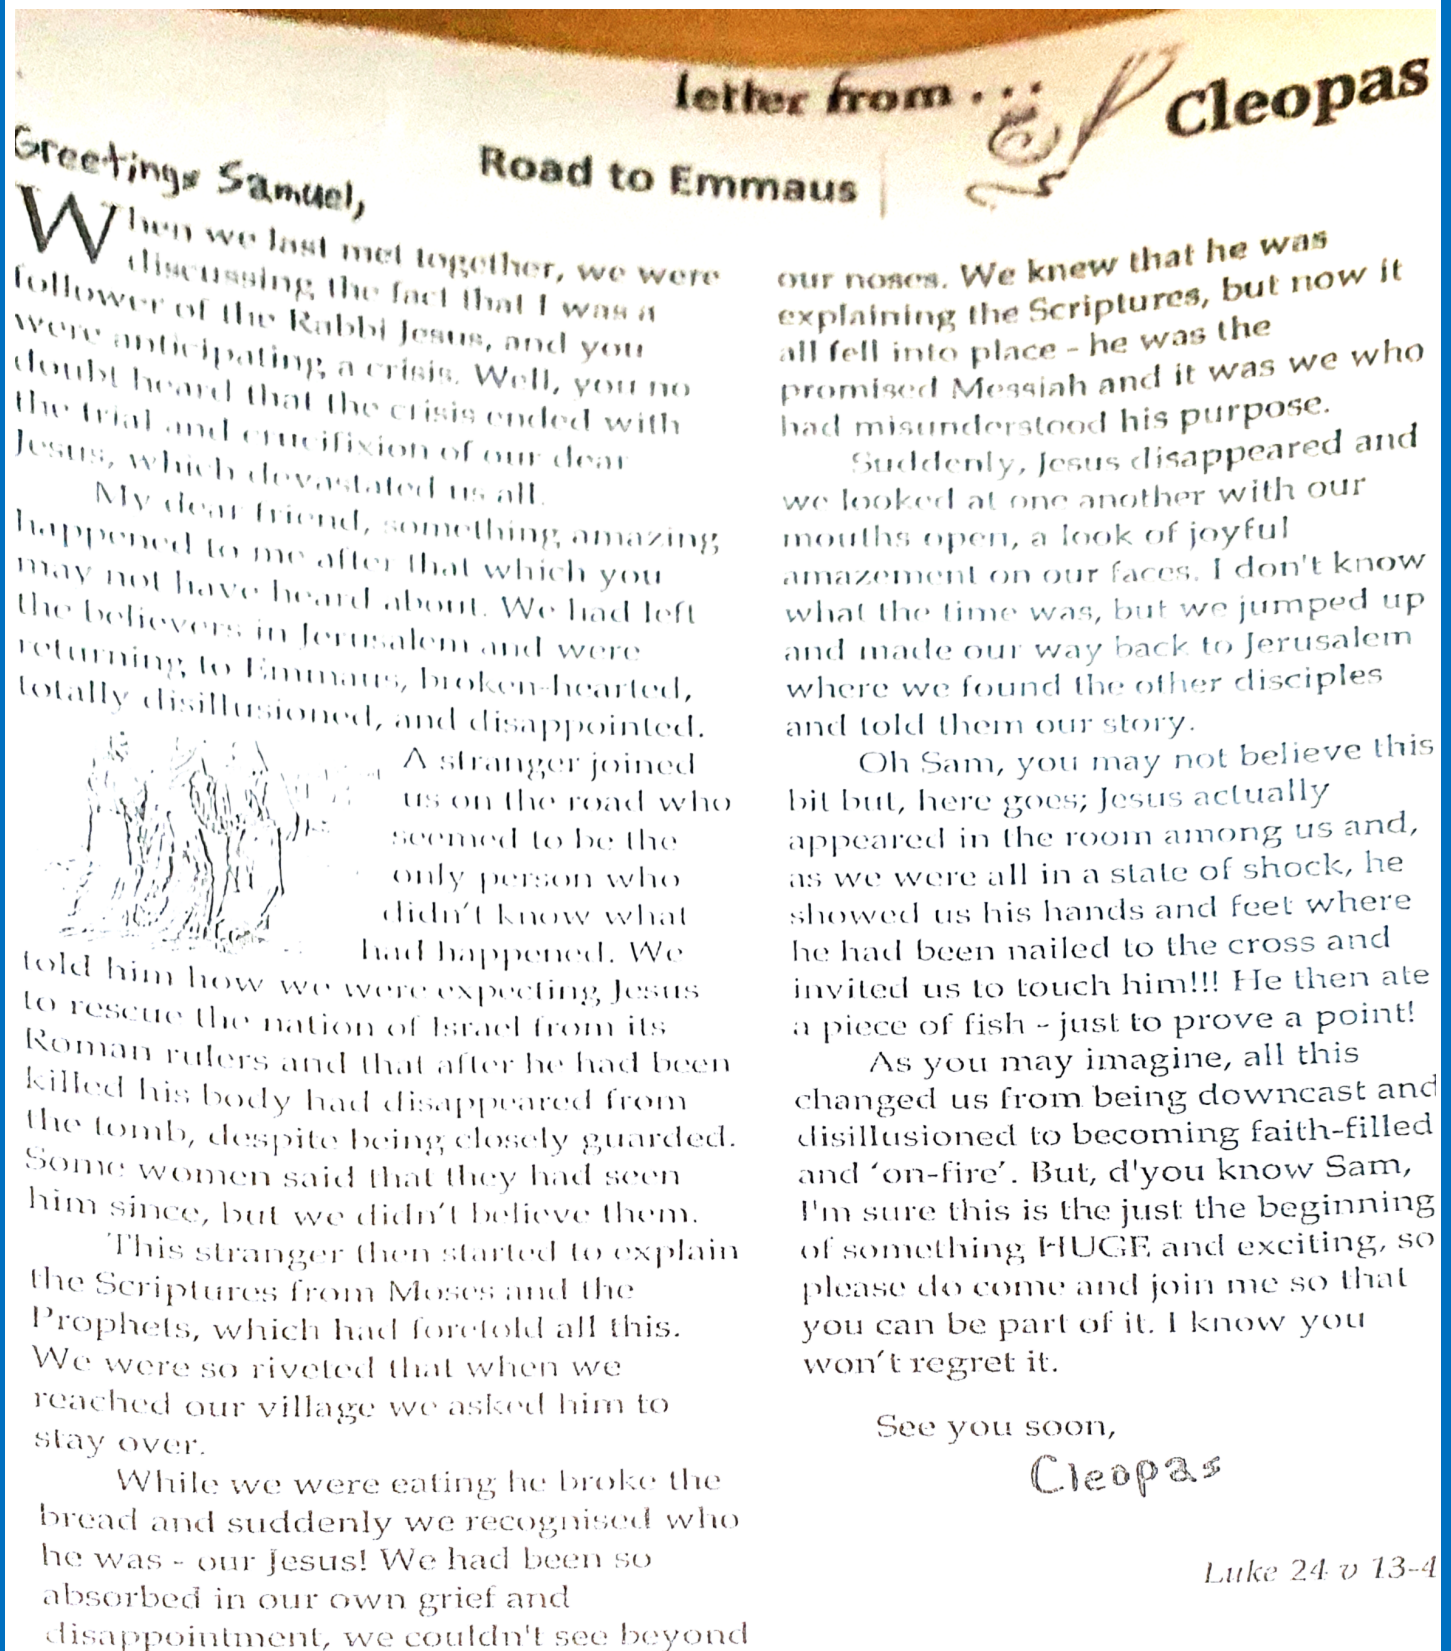 letter from . . . Cleopas
Road to Emmaus
Greetings Samuel,
When we last met together, we were
discussing the fact that I was a
follower of the Rabbi Jesus, and you
were anticipating a crisis. Well, you no
doubt heard that the crisis ended with
the trial and crucifixion of our dear
Jesus, which devastated us all.
My dear friend, something amazing
happened to me after that which you
may not have heard about. We had left
the believers in Jerusalem and were
returning to Emmaus, broken-hearted,
totally disillusioned, and disappointed.
A stranger joined
us on the road who
seemed to be the
only person who
didn't know what
had happened. We
told him how we were expecting Jesus
to rescue the nation of Israel from its
Roman rulers and that after he had been
killed his body had disappeared from
the tomb, despite being closely guarded.
Some women said that they had seen
him since, but we didn't believe them.
This stranger then started to explain
the Scriptures from Moses and the
Prophets, which had foretold all this.
We were so riveted that when we
reached our village we asked him to
stay over.
While we were eating he broke the
bread and suddenly we recognised who
he was - our Jesus! We had been so
absorbed in our own grief and
disappointment, we couldn't see beyond
our noses. We knew that he was
explaining the Scriptures, but now it
all fell into place - he was the
promised Messiah and it was we who
had misunderstood his purpose.
Suddenly, Jesus disappeared and
we looked at one another with our
mouths open, a look of joyful
amazement on our faces. I don't know
what the time was, but we jumped up
and made our way back to Jerusalem
where we found the other disciples
and told them our story.
Oh Sam, you may not believe this
bit but, here goes; Jesus actually
appeared in the room among us and,
as we were all in a state of shock, he
showed us his hands and feet where
he had been nailed to the cross and
invited us to touch him!!! He then ate
a piece of fish - just to prove a point!
As you may imagine, all this
changed us from being downcast and
disillusioned to becoming faith-filled
and ‘on-fire’. But, d'you know Sam,
I'm sure this is the just the beginning
of something HUGE and exciting, so
please do come and join me so that
you can be part of it. I know you
won't regret it.
See you soon,
Cleopas
Luke 24 v 13-4